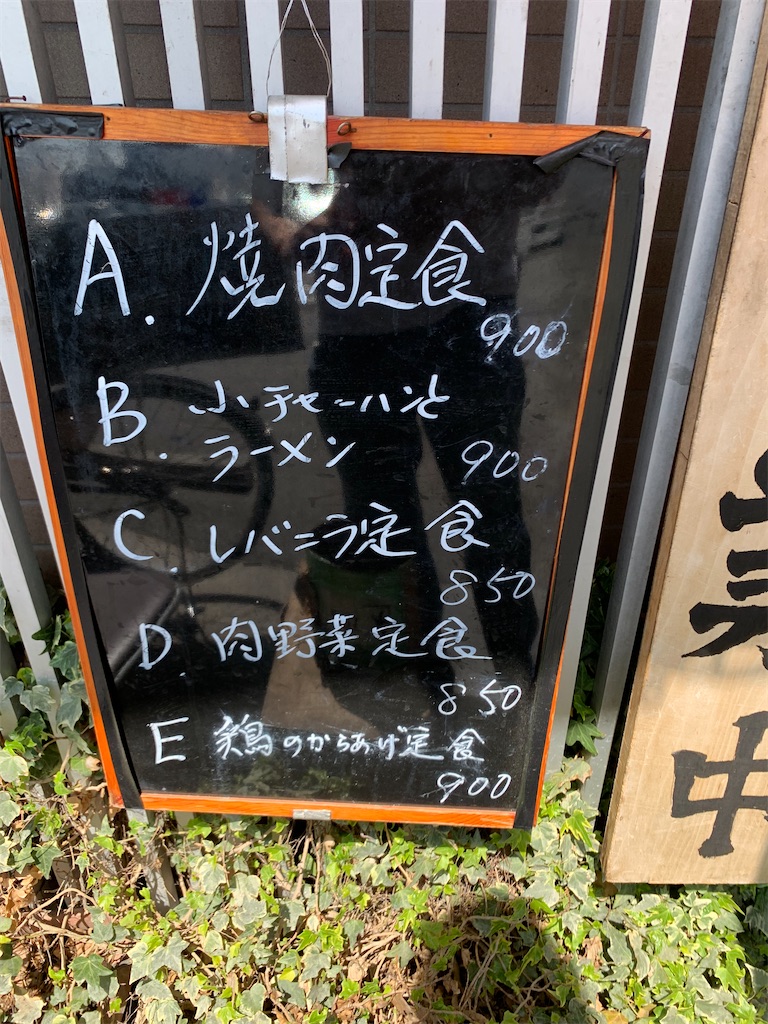 A. 焼肉定食
900
B. 小チャーハンと
ラーメン 900
C. レバニラ定食
850
D. 肉野菜定食
850
E 鶏のからあげ定食
900
業
中